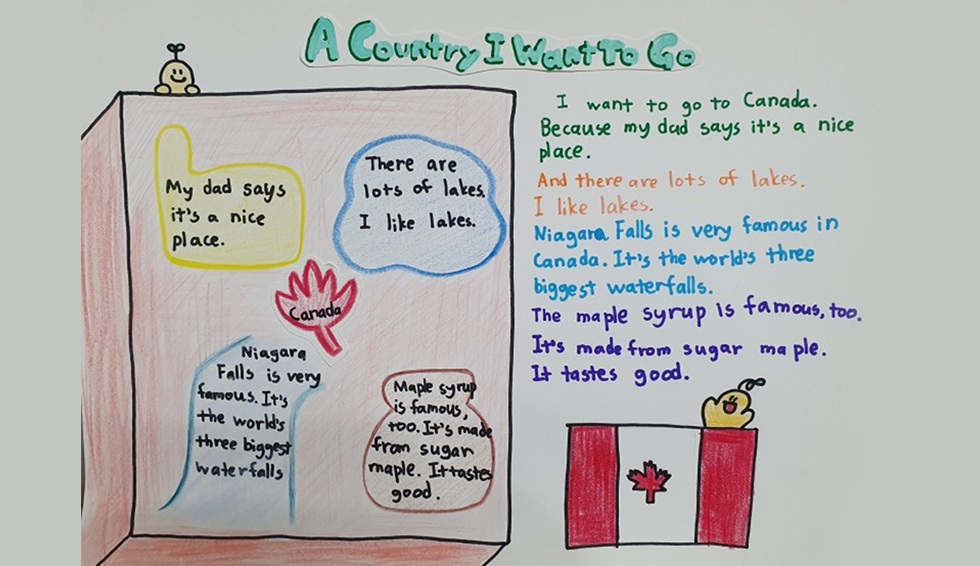 A Country I Want To Go
My dad says
it's a nice
place.
There are
lots of lakes.
I like lakes.
Canada
Niagara
Falls is very
famous. It's
the world's
three biggest
waterfalls
Maple syrup
is famous,
too. It's made
from sugar
maple. It tastes
good.
I want to go to Canada.
Because my dad says it's a nice
place.
And there are lots of lakes.
I like lakes.
Niagara Falls is very famous in
Canada. It's the world's three
biggest waterfalls.
The maple syrup is famous, too.
It's made from sugar maple.
It tastes good.